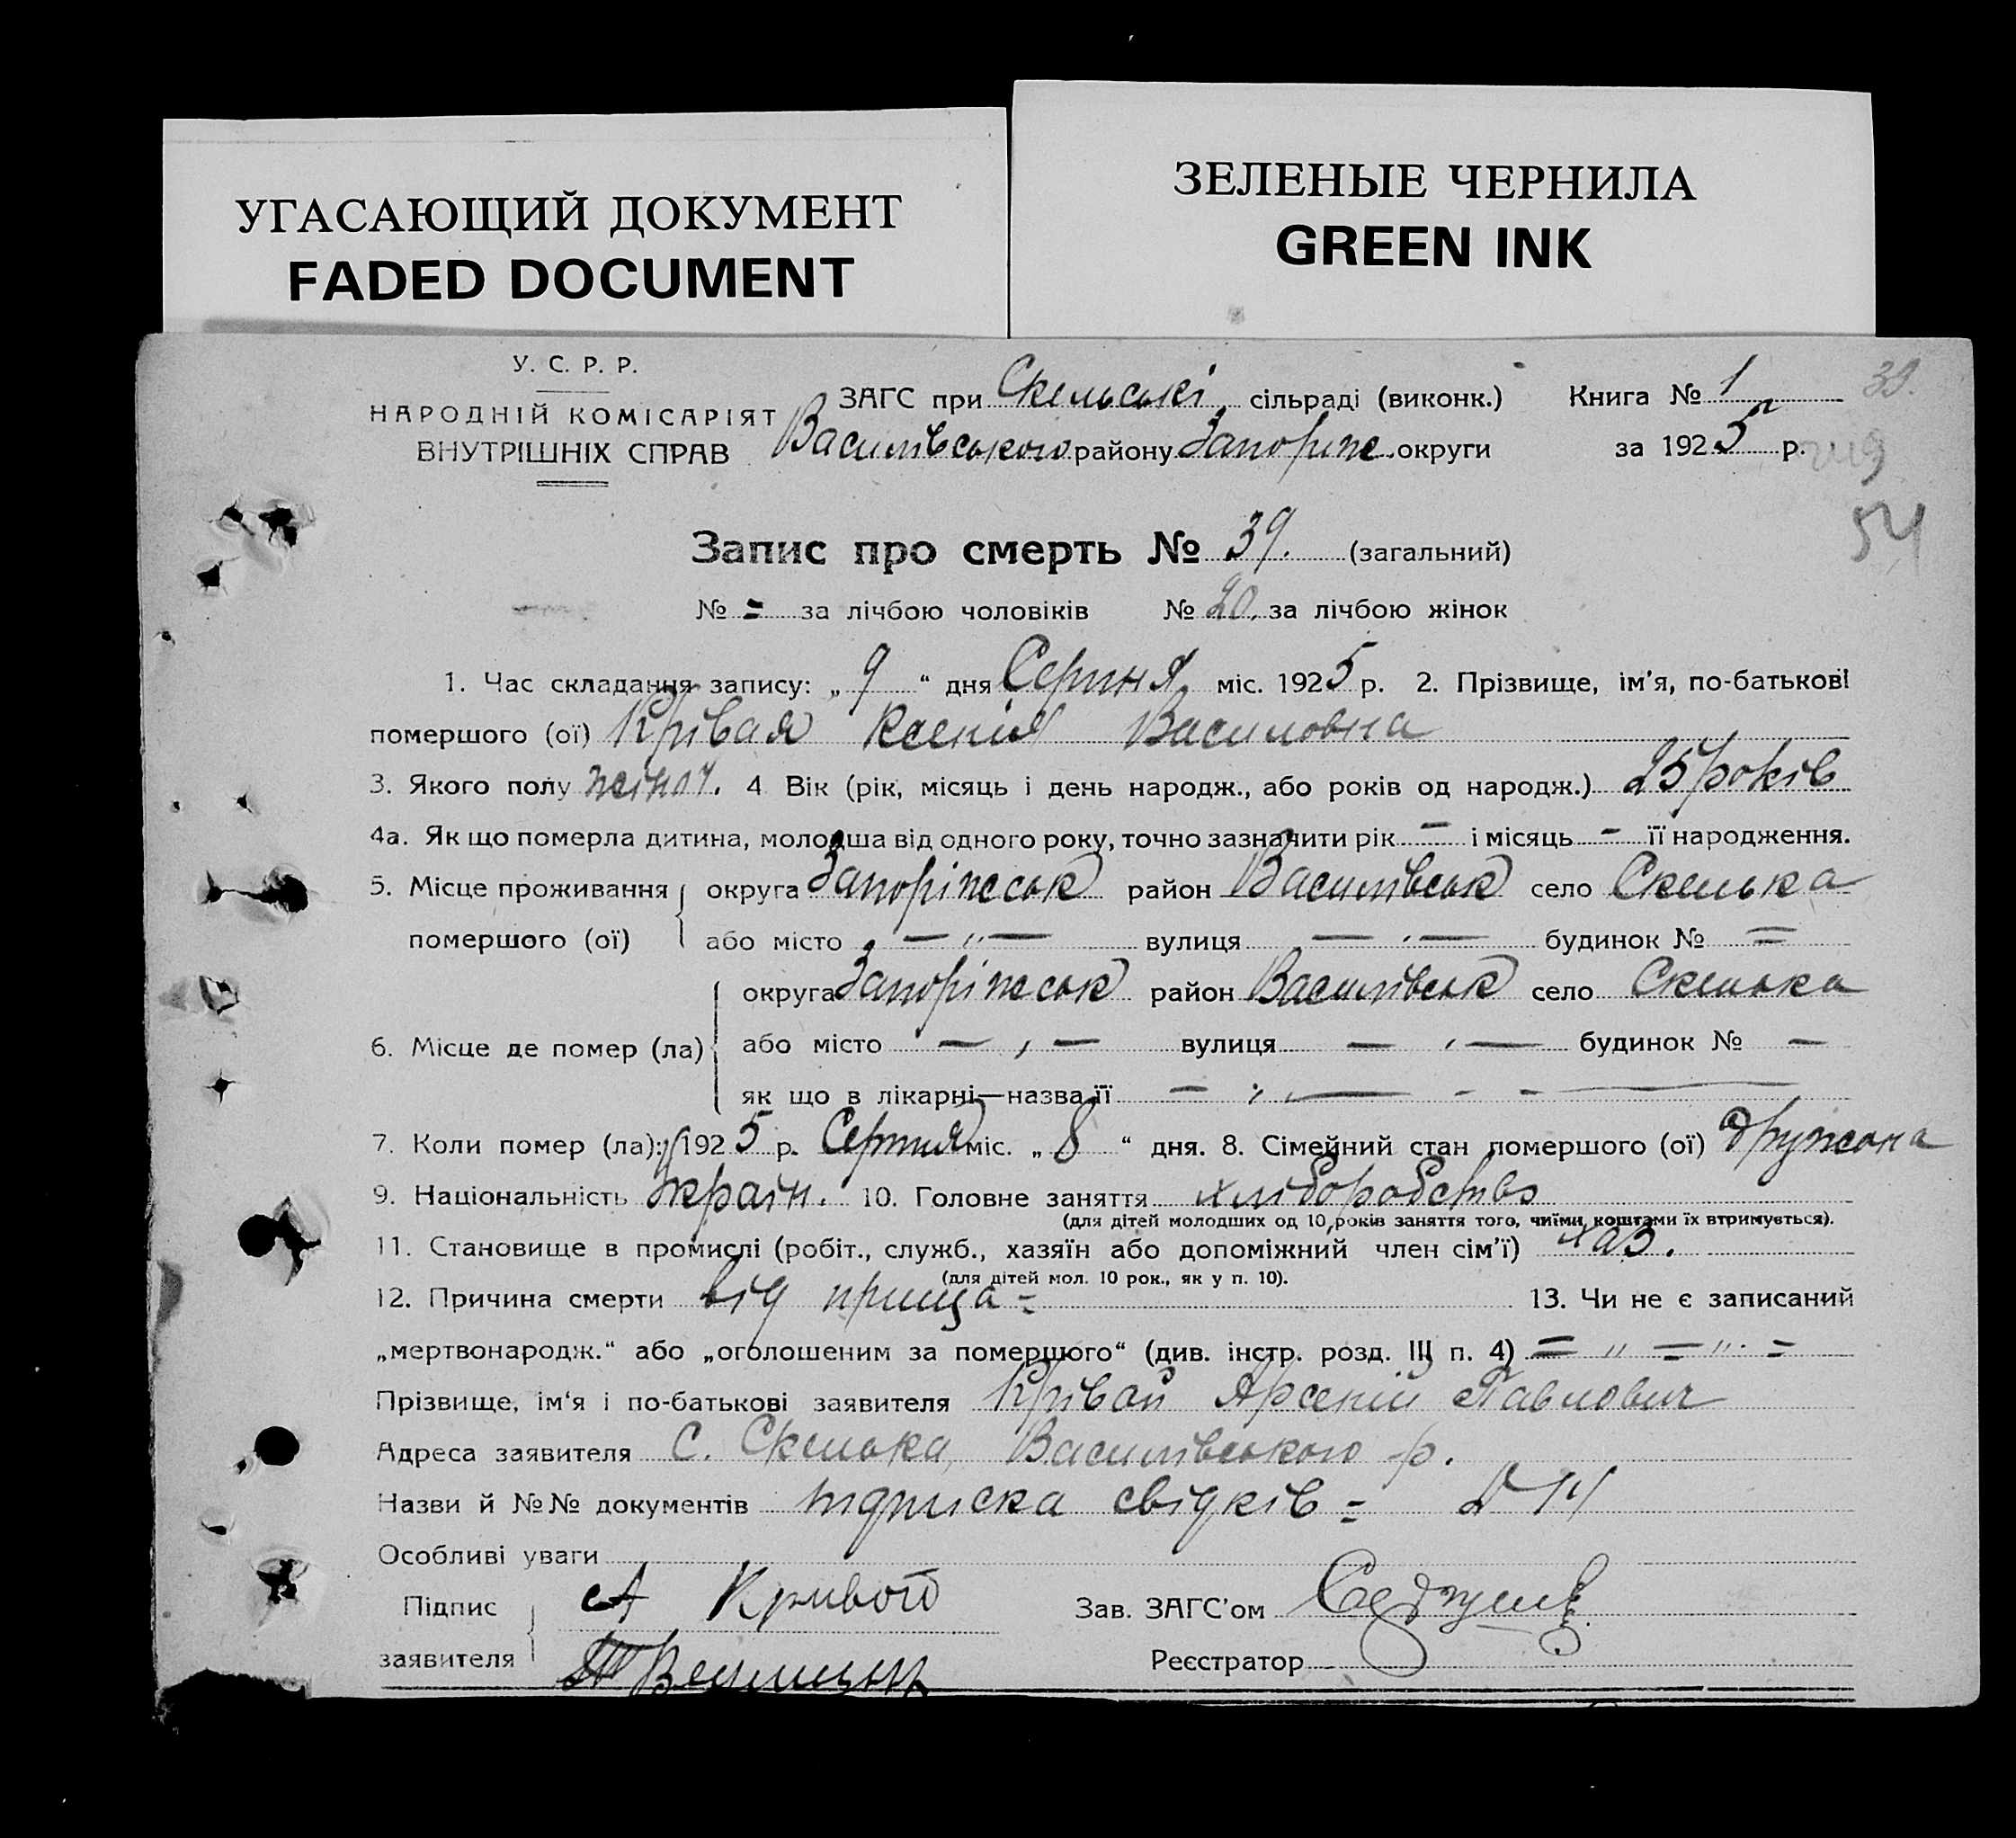 УГАСАЮЩИЙ ДОКУМЕНТ
FADED DOCUMENT
ЗЕЛЕНЫЕ ЧЕРНИЛА
GREEN INK
У. С. Р. Р.
НАРОДНІЙ КОМІСАРІЯТ
ВНУТРІШНІХ СПРАВ
ЗАГС при Скельські сільраді (виконк.) Книга № 1 39.
Василівського району Запоріж. округи за 1925 р.
54
Запис про смерть № 39. (загальний)
№ = за лічбою чоловіків № 20. за лічбою жінок
1. Час складання запису: „ 9 “ дня Серпня міс. 1925 р. 2. Прізвище, ім'я, по-батькові
помершого (ої) Крівая Ксенія Василовна
3. Якого полу жіноч. 4 Вік (рік, місяць і день народж., або років од народж.) 25 років
4а. Як що померла дитина, молодша від одного року, точно зазначити рік — і місяць — її народження.
5. Місце проживання округа Запоріжськ район Василівськ село Скелька
помершого (ої) або місто — „ — вулиця — „ — будинок № =
округа Запоріжськ район Василівськ село Скелька
6. Місце де помер (ла) або місто — „ — вулиця — „ — будинок № —
як що в лікарні—назва її — „ — - - —
7. Коли помер (ла): 1925 р. Серпня міс. „ 8 “ дня. 8. Сімейний стан помершого (ої) дружона
9. Національність Україн. 10. Головне заняття хліборобство
(для дітей молодших од 10 років заняття того, чиїми коштами їх втримується).
11. Становище в промислі (робіт., служб., хазяїн або допоміжний член сім'ї) хаз.
(для дітей мол. 10 рок., як у п. 10).
12. Причина смерти від прища = 13. Чи не є записаний
„мертвонародж.“ або „оголошеним за помершого“ (див. інстр. розд. III п. 4) = „ = „ =
Прізвище, ім'я і по-батькові заявителя Крівай Арсеній Павлович
Адреса заявителя С. Скелька, Василівського р.
Назви й №№ документів підписка свідків =
Особливі уваги
Підпис А Кривой Зав. ЗАГС'ом
заявителя Реєстратор